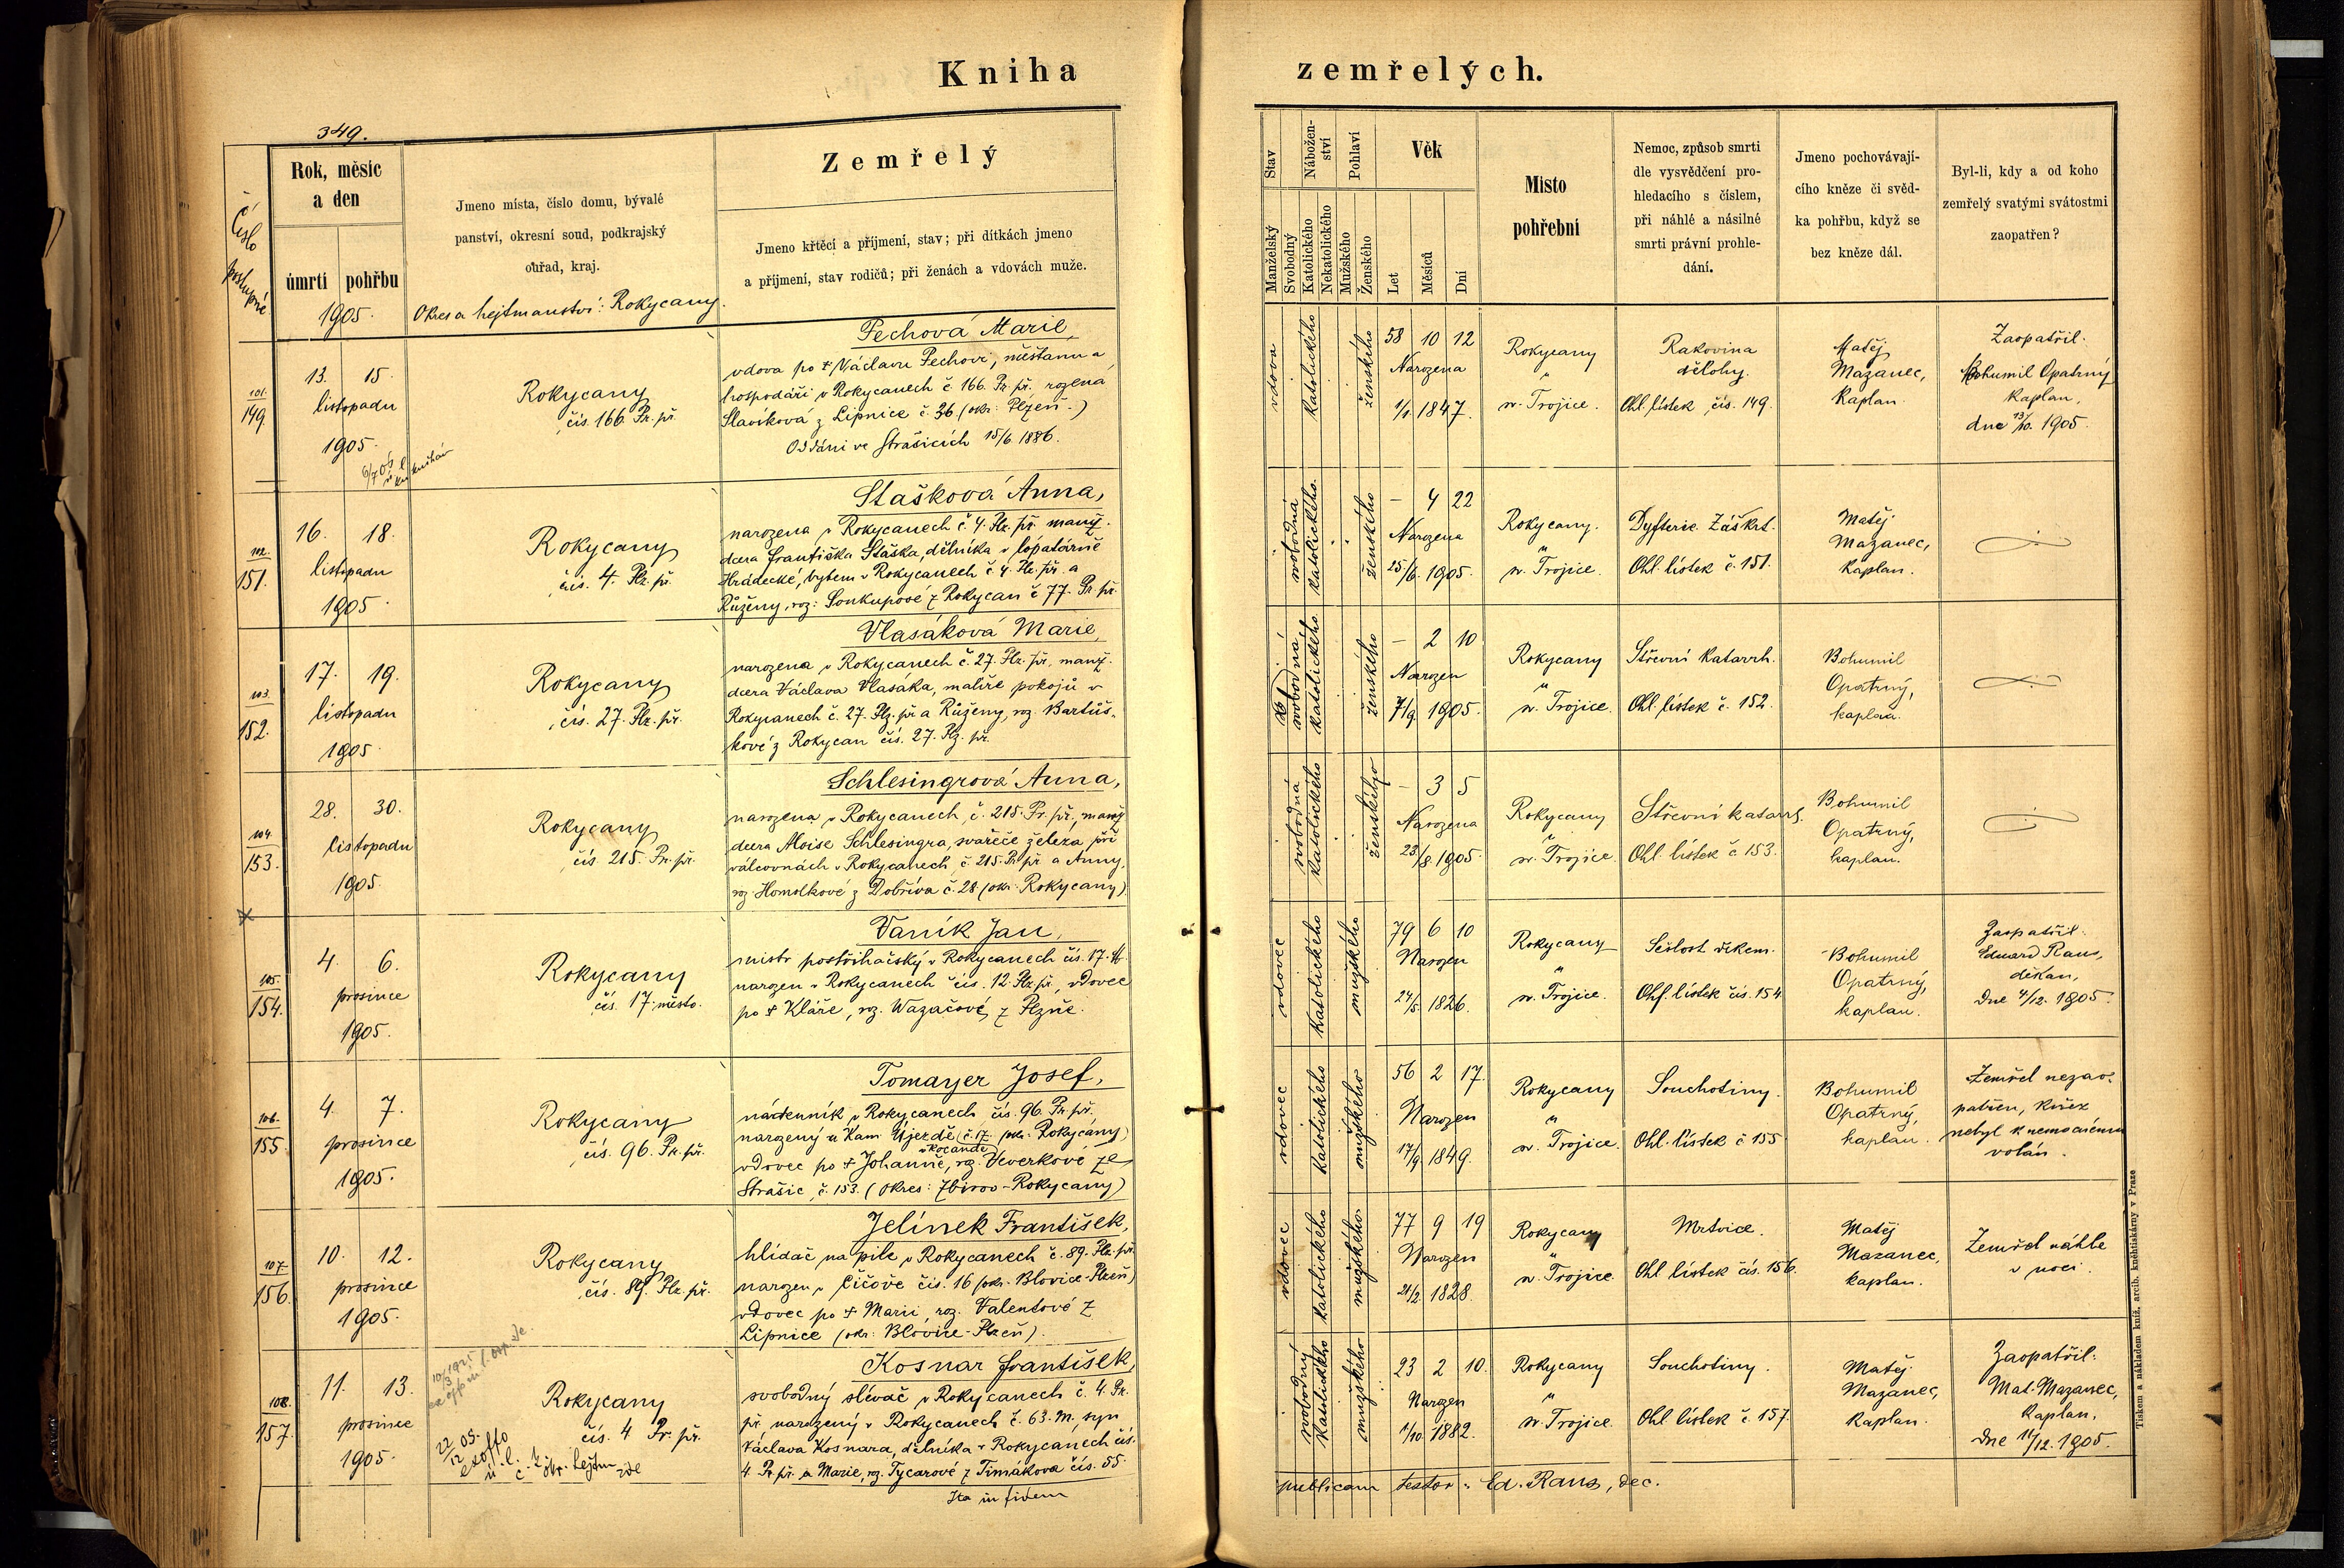 Kniha zemřelých.
349.
Číslo postupné
Rok, měsíc a den
úmrtí pohřbu
1905.
Jmeno místa, číslo domu, bývalé
panství, okresní soud, podkrajský
ouřad, kraj.
Okres a hejtmanství: Rokycany.
Zemřelý
Jmeno křtěcí a příjmení, stav; při dítkách jmeno
a příjmení, stav rodičů; při ženách a vdovách muže.
Stav
Manželský
Svobodný
Náboženství
Katolického
Nekatolického
Pohlaví
Mužského
Ženského
Věk
Let
Měsíců
Dní
Místo
pohřební
Nemoc, způsob smrti
dle vysvědčení pro-
hledacího s číslem,
při náhlé a násilné
smrti právní prohle-
dání.
Jmeno pochovávají-
cího kněze či svěd-
ka pohřbu, když se
bez kněze dál.
Byl-li, kdy a od koho
zemřelý svatými svátostmi
zaopatřen?
101.
149.
13. 15.
listopadu
1905.
Rokycany
čís. 166. Pr. př.
Pechová Marie,
vdova po † Václavu Pechovi, měšťanu a
hospodáři v Rokycanech č 166. Pr. př. rozená
Slavíková z Lipnice č. 36 (okr: Plzeň.)
Oddáni ve Strašicích 15/6. 1886.
vdova
katolického
ženského
58 10 12
Narozena
1/1. 1847.
Rokycany
"
sv. Trojice.
Rakovina
dělohy.
Ohl. lístek čís. 149.
Matěj
Mazanec,
kaplan.
Zaopatřil.
Bohumil Opatrný
kaplan,
dne 13/10. 1905.
102.
151.
16. 18.
listopadu
1905.
Rokycany
čís. 4. Plz. př.
Stašková Anna,
narozena v Rokycanech č. 4. Plz. př. manž.
dcera Františka Staška, dělníka v lopatárně
Hrádecké, bytem v Rokycanech č 4. Plz. př. a
Růženy, roz: Soukupové z Rokycan č 77. Pr. př.
svobodná
katolického.
ženského
– 4 22
Narozena
25/6. 1905.
Rokycany.
"
sv. Trojice.
Dyfterie. Záškrt.
Ohl. lístek č. 151.
Matěj
Mazanec,
kaplan.
103.
152.
17. 19.
listopadu
1905.
Rokycany
čís. 27. Plz. př.
Vlasáková Marie,
narozena v Rokycanech č. 27. Plz. př., manž.
dcera Václava Vlasáka, malíře pokojů v
Rokycanech č. 27. Plz. př a Růženy, roz. Bartůš-
kové z Rokycan čís. 27. Plz. př.
svobodná
katolického.
ženského
– 2 10
Narozen
7/9. 1905.
Rokycany
"
sv. Trojice.
Střevní katarrh.
Ohl. lístek č. 152.
Bohumil
Opatrný,
kaplan.
104.
153.
28. 30.
listopadu
1905.
Rokycany
čís. 215. Pr. př.
Schlesingrová Anna,
narozena v Rokycanech, č. 215. Pr. př., manž
dcera Aloise Schlesingra, svářeče železa při
válcovnách v Rokycanech, č. 215. Pr. př a Anny,
roz. Homolkové z Dobříva č. 28 (okr. Rokycany)
svobodná
katolického
ženského
– 3 5
Narozena
23/8. 1905.
Rokycany
"
sv. Trojice.
Střevní katarrh.
Ohl. lístek č 153.
Bohumil
Opatrný,
kaplan.
105.
154.
4. 6.
prosince
1905.
Rokycany
čís. 17. město.
Vaník Jan,
mistr postřihačský v Rokycanech čís. 17. M.
narozen v Rokycanech čís. 12. Plz. př., vdovec
po † Kláře, roz. Wazačové z Plzně.
vdovec
katolického
mužského
79 6 10
Narozen
24/5. 1826.
Rokycany
"
sv. Trojice.
Sešlost věkem.
Ohl. lístek čís. 154
Bohumil
Opatrný,
kaplan.
Zaopatřil.
Eduard Raus,
děkan,
dne 4/12. 1905.
106.
155.
4. 7.
prosince
1905.
Rokycany
čís. 96. Pr. př.
Tomayer Josef,
nádenník v Rokycanech čís. 96. Pr. př.
narozený v Kam. Újezdě (č. 17. (okr: Rokycany)
vdovec po † Johanně, roz. Veverkové ze
Strašic, č. 153. (Okres: Zbirov-Rokycany)
vdovec
katolického
mužského
56 2 17.
Narozen
17/9. 1849.
Rokycany
"
sv. Trojice.
Souchotiny.
Ohl. lístek č 155
Bohumil
Opatrný,
kaplan.
Zemřel nezao-
patřen, kněz
nebyl k nemocnému
volán.
107.
156.
10. 12.
prosince
1905.
Rokycany
čís. 89. Plz. př.
Jelínek František,
hlídač na pile v Rokycanech č. 89. Plz. př.
narozen v Číčově čís. 16 (okr. Blovice-Plzeň)
vdovec po † Marii, roz. Valentové z
Lipnice (okr: Blovice-Plzeň).
vdovec
katolického
mužského.
77 9 19
Narozen
21/2. 1828.
Rokycany
"
sv. Trojice.
Mrtvice.
Ohl lístek čís. 156.
Matěj
Mazanec,
kaplan.
Zemřel náhle
v noci.
108.
157.
11. 13.
prosince
1905.
22/12 05.
ex offo
Rokycany
čís. 4 Pr. př.
Kosnar František,
svobodný slévač v Rokycanech č. 4. Pr.
př. narozený v Rokycanech č. 63. M., syn
Václava Kosnara, dělníka v Rokycanech čís.
4. Pr. př. a Marie, roz. Tycarové z Timákova čís. 55.
svobodný
katolického
mužského
23 2 10.
Narozen
1/10. 1882.
Rokycany
"
sv. Trojice.
Souchotiny.
Ohl lístek č. 157.
Matěj
Mazanec,
kaplan.
Zaopatřil:
Mat. Mazanec,
kaplan,
dne 11/12. 1905.
Ita in fidem publicam testor: Ed. Raus, dec.
Tiskem a nákladem kníž. arcib. knihtiskárny v Praze